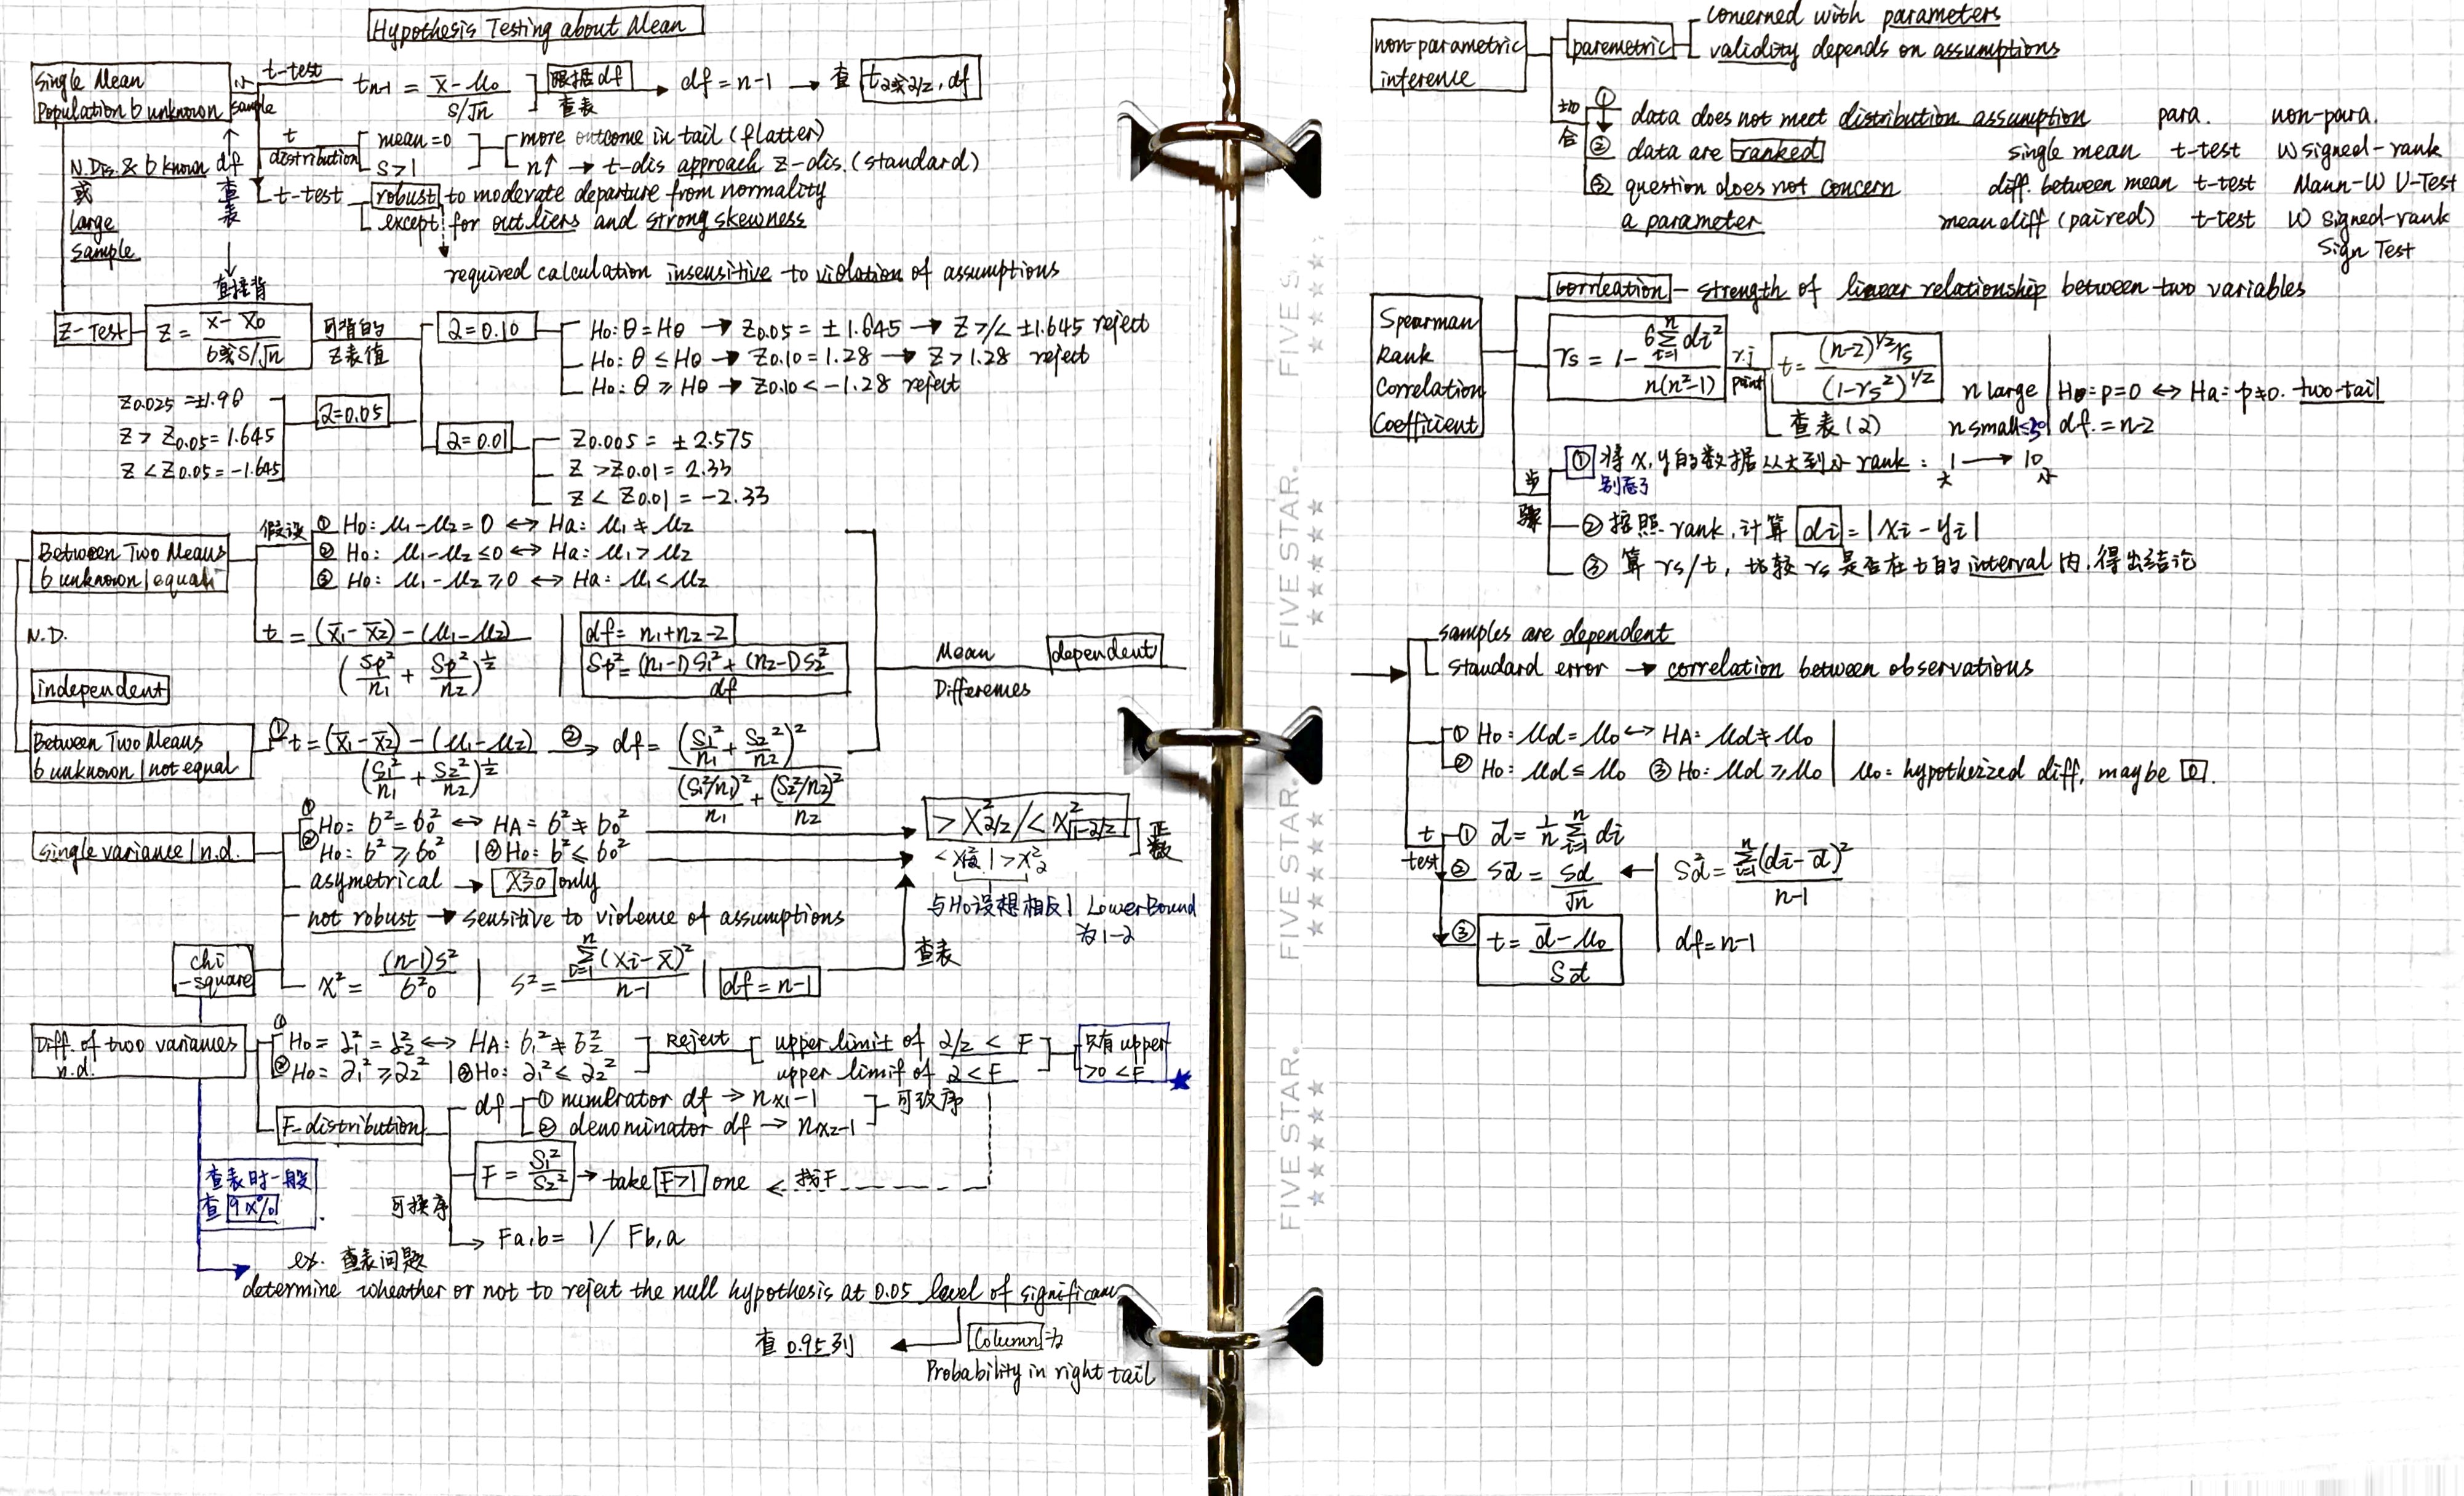 Hypothesis Testing about Mean
Single Mean
Population б unknown
小 sample
t-test
tn-1 = x̄ - μ0 / S/√n
根据df
查表
→ df = n-1 → 查 t2或2/2, df
t distribution
mean = 0
S>1
more outcome in tail (flatter)
n↑ → t-dis approach z-dis. (standard)
t-test
robust to moderate departure from normality
except for outliers and strong skewness
required calculation insensitive to violation of assumptions
N.Dis. & б known
或
large
sample
df
查
表
直接背
Z-Test
Z = x̄ - x̄0 / б或S/√n
可背的
Z表值
2=0.10
H0: θ = Hθ → Z0.05 = ±1.645 → Z >/< ±1.645 reject
H0: θ ≤ Hθ → Z0.10 = 1.28 → Z > 1.28 reject
H0: θ ≥ Hθ → Z0.10 < -1.28 reject
Z0.025 = ±1.96
Z > Z0.05 = 1.645
Z < Z0.05 = -1.645
2=0.05
2=0.01
Z0.005 = ±2.575
Z > Z0.01 = 2.33
Z < Z0.01 = -2.33
Between Two Means
б unknown | equal
假设
① H0: μ1-μ2 = 0 ↔ Ha: μ1 ≠ μ2
② H0: μ1-μ2 ≤ 0 ↔ Ha: μ1 > μ2
③ H0: μ1-μ2 ≥ 0 ↔ Ha: μ1 < μ2
N.D.
independent
t = (x̄1-x̄2) - (μ1-μ2) / (Sp²/n1 + Sp²/n2)^½
df = n1+n2-2
Sp² = (n1-1)S1² + (n2-1)S2² / df
Mean
Differences
dependent
Between Two Means
б unknown | not equal
① t = (x̄1-x̄2) - (μ1-μ2) / (S1²/n1 + S2²/n2)^½
② → df = (S1²/n1 + S2²/n2)² / (S1²/n1)²/n1 + (S2²/n2)²/n2
Single variance | n.d.
① H0: б² = б0² ↔ HA = б² ≠ б0²
② H0: б² ≥ б0² | ③ H0: б² ≤ б0²
> X²2/2 / < X²1-2/2
正数
asymetrical → X≥0 only
not robust → sensitive to violence of assumptions
与H0设想相反 | Lower Bound
为1-2
查表
chi
-square
x² = (n-1)S² / б²0
S² = Σ(i=1→n) (xi-x̄)² / n-1
df = n-1
Diff. of two variances
n.d.
① H0 = 21² = 22² ↔ HA: б1² ≠ б2²
② H0 = 21² ≥ 22² | ③ H0: 21² ≤ 22²
Reject
upper limit of 2/2 < F
upper limit of 2 < F
只有upper
>0 <F
F-distribution
df
① numerator df → nx1-1
② denominator df → nx2-1
可改序
F = S1²/S2² → take F>1 one
找F
可换序
→ Fa,b = 1/ Fb,a
查表时一般
查 9x%
ex. 查表问题
determine wheather or not to reject the null hypothesis at 0.05 level of significan
查 0.95列 ← Column 为
Probability in right tail
FIVE STAR.
FIVE STAR.
FIVE STAR.
FIVE STAR.
non-parametric
inference
paremetric
concerned with parameters
validity depends on assumptions
场合
① data does not meet distribution assumption
② data are ranked
③ question does not concern
a parameter
para. non-para.
single mean t-test W signed-rank
diff. between mean t-test Mann-W U-Test
mean diff (paired) t-test W signed-rank
Sign Test
Spearman
Rank
Correlation
Coefficient
Corrleation - strength of linear relationship between two variables
rs = 1 - 6Σ(i=1→n) di² / n(n²-1)
r.j
point
t = (n-2)^1/2 rs / (1-rs²)^1/2
查表(2)
n large
n small≤30
H0: p=0 ↔ Ha: p≠0. two-tail
df. = n-2
步骤
① 将x, y的数据从大到小 rank: 1 → 10
大 小
别忘了
② 按照 rank, 计算 di = |xi - yi|
③ 算 rs/t, 比较 rs 是否在t的interval内, 得出结论
samples are dependent
standard error → correlation between observations
① H0: μd = μ0 ↔ HA: μd ≠ μ0
② H0: μd ≤ μ0 ③ H0: μd ≥ μ0
μ0: hypothezized diff, maybe 0.
t test
① d̄ = 1/n Σ(i=1→n) di
② Sd̄ = Sd/√n ← Sd² = Σ(i=1→n) (di-d̄)² / n-1
③ t = d̄ - μ0 / Sd̄
df = n-1